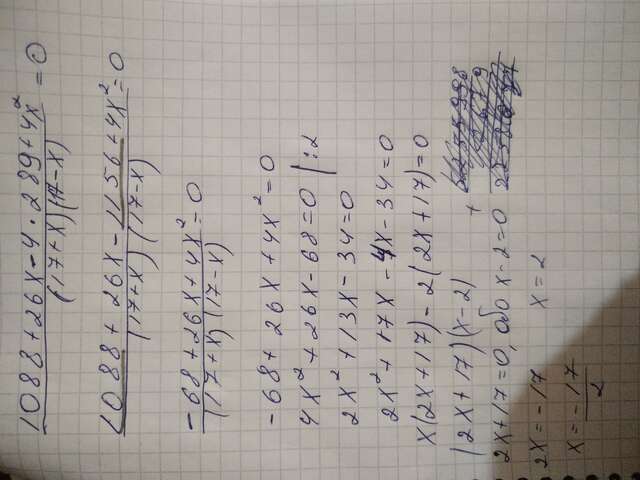 1088+26x-4·289+4x² / (17+x)(17-x) = 0
1088+26x-1156+4x² / (17+x)(17-x) = 0
-68+26x+4x² / (17+x)(17-x) = 0
-68+26x+4x²=0
4x²+26x-68=0 |:2
2x²+13x-34=0
2x²+17x-4x-34=0
x(2x+17)-2(2x+17)=0
(2x+17)(x-2)
2x+17=0, або x-2=0
2x=-17 x=2
x=-17/2